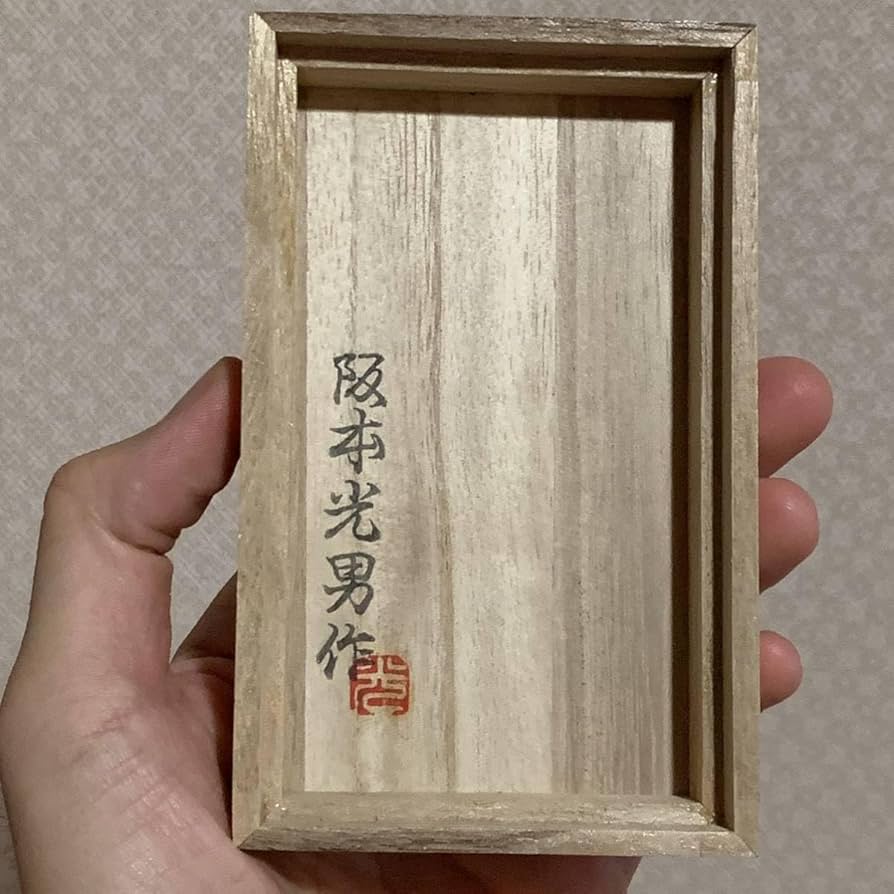 阪本光男作
光